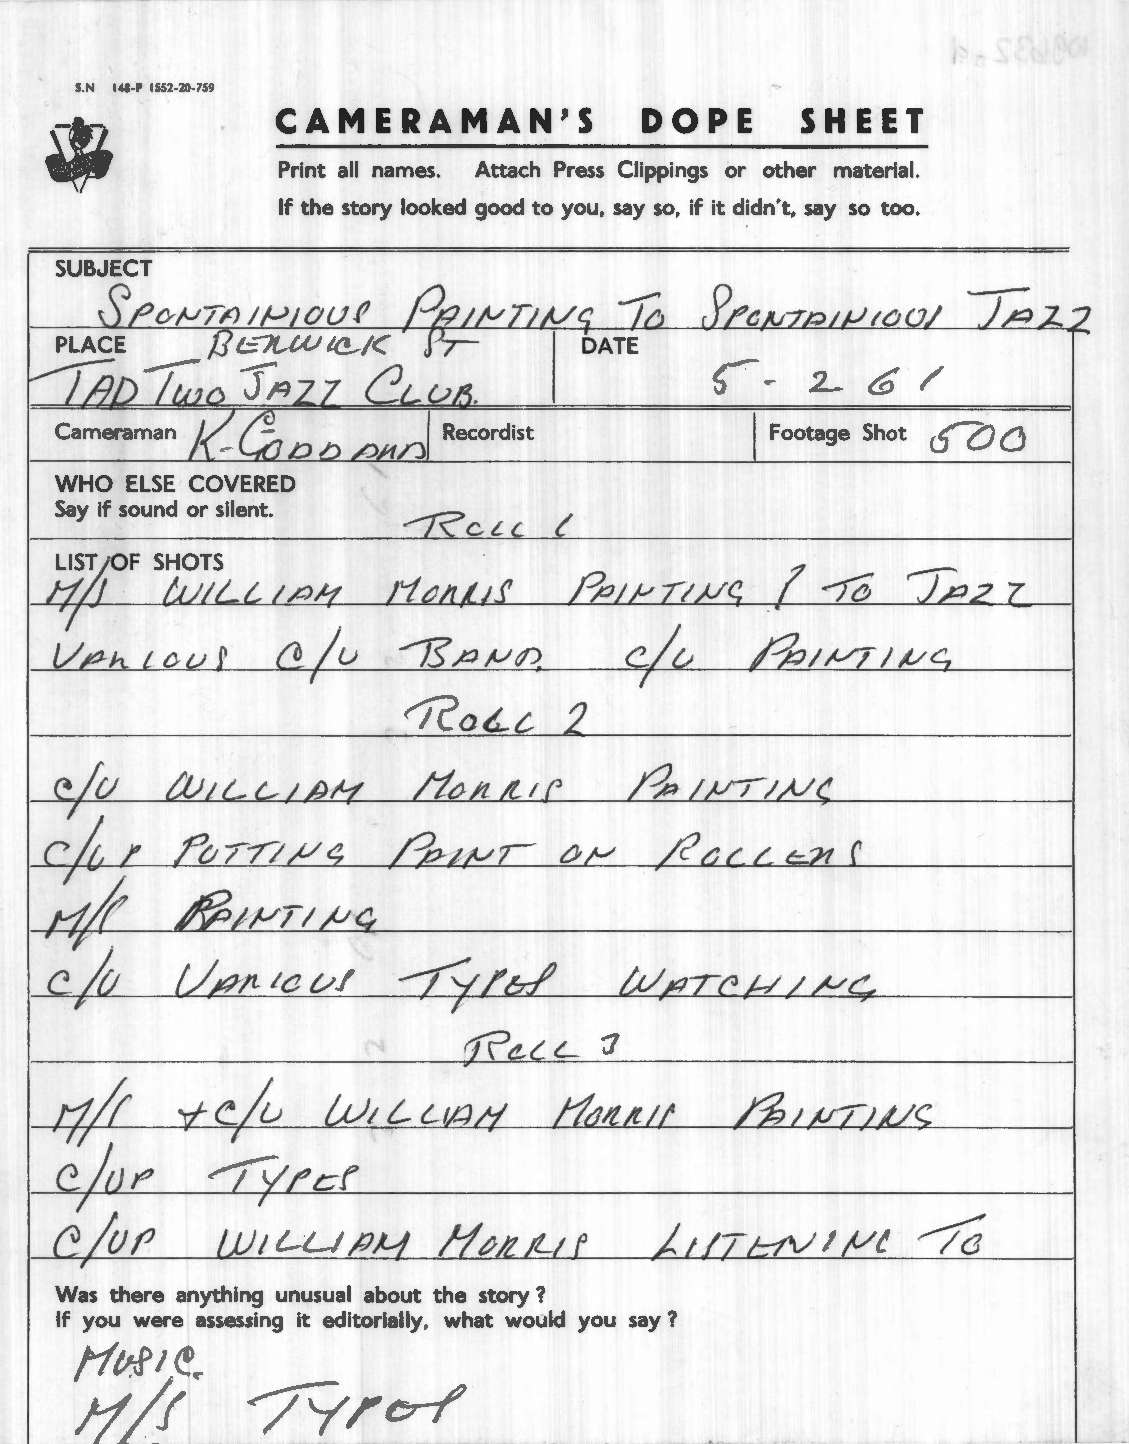 S.N 148-P 1552-20-759
CAMERAMAN'S DOPE SHEET
Print all names. Attach Press Clippings or other material.
If the story looked good to you, say so, if it didn't, say so too.
SUBJECT
SPONTAINIOUS PAINTING TO SPONTAINIOUS JAZZ
PLACE BERWICK ST DATE
TAD TWO JAZZ CLUB. 5-2-61
Cameraman K-GODDARD Recordist Footage Shot 500
WHO ELSE COVERED
Say if sound or silent.
ROLL 1
LIST OF SHOTS
M/S WILLIAM MORRIS PAINTING ! TO JAZZ
VARIOUS C/U BAND. C/U PAINTING
ROLL 2
C/U WILLIAM MORRIS PAINTING
C/UP PUTTING PAINT ON ROLLERS
M/S PAINTING
C/U VARIOUS TYPES WATCHING
ROLL 3
M/S + C/U WILLIAM MORRIS PAINTING
C/UP TYPES
C/UP WILLIAM MORRIS LISTENING TO
Was there anything unusual about the story?
If you were assessing it editorially, what would you say?
MUSIC.
M/S TYPES